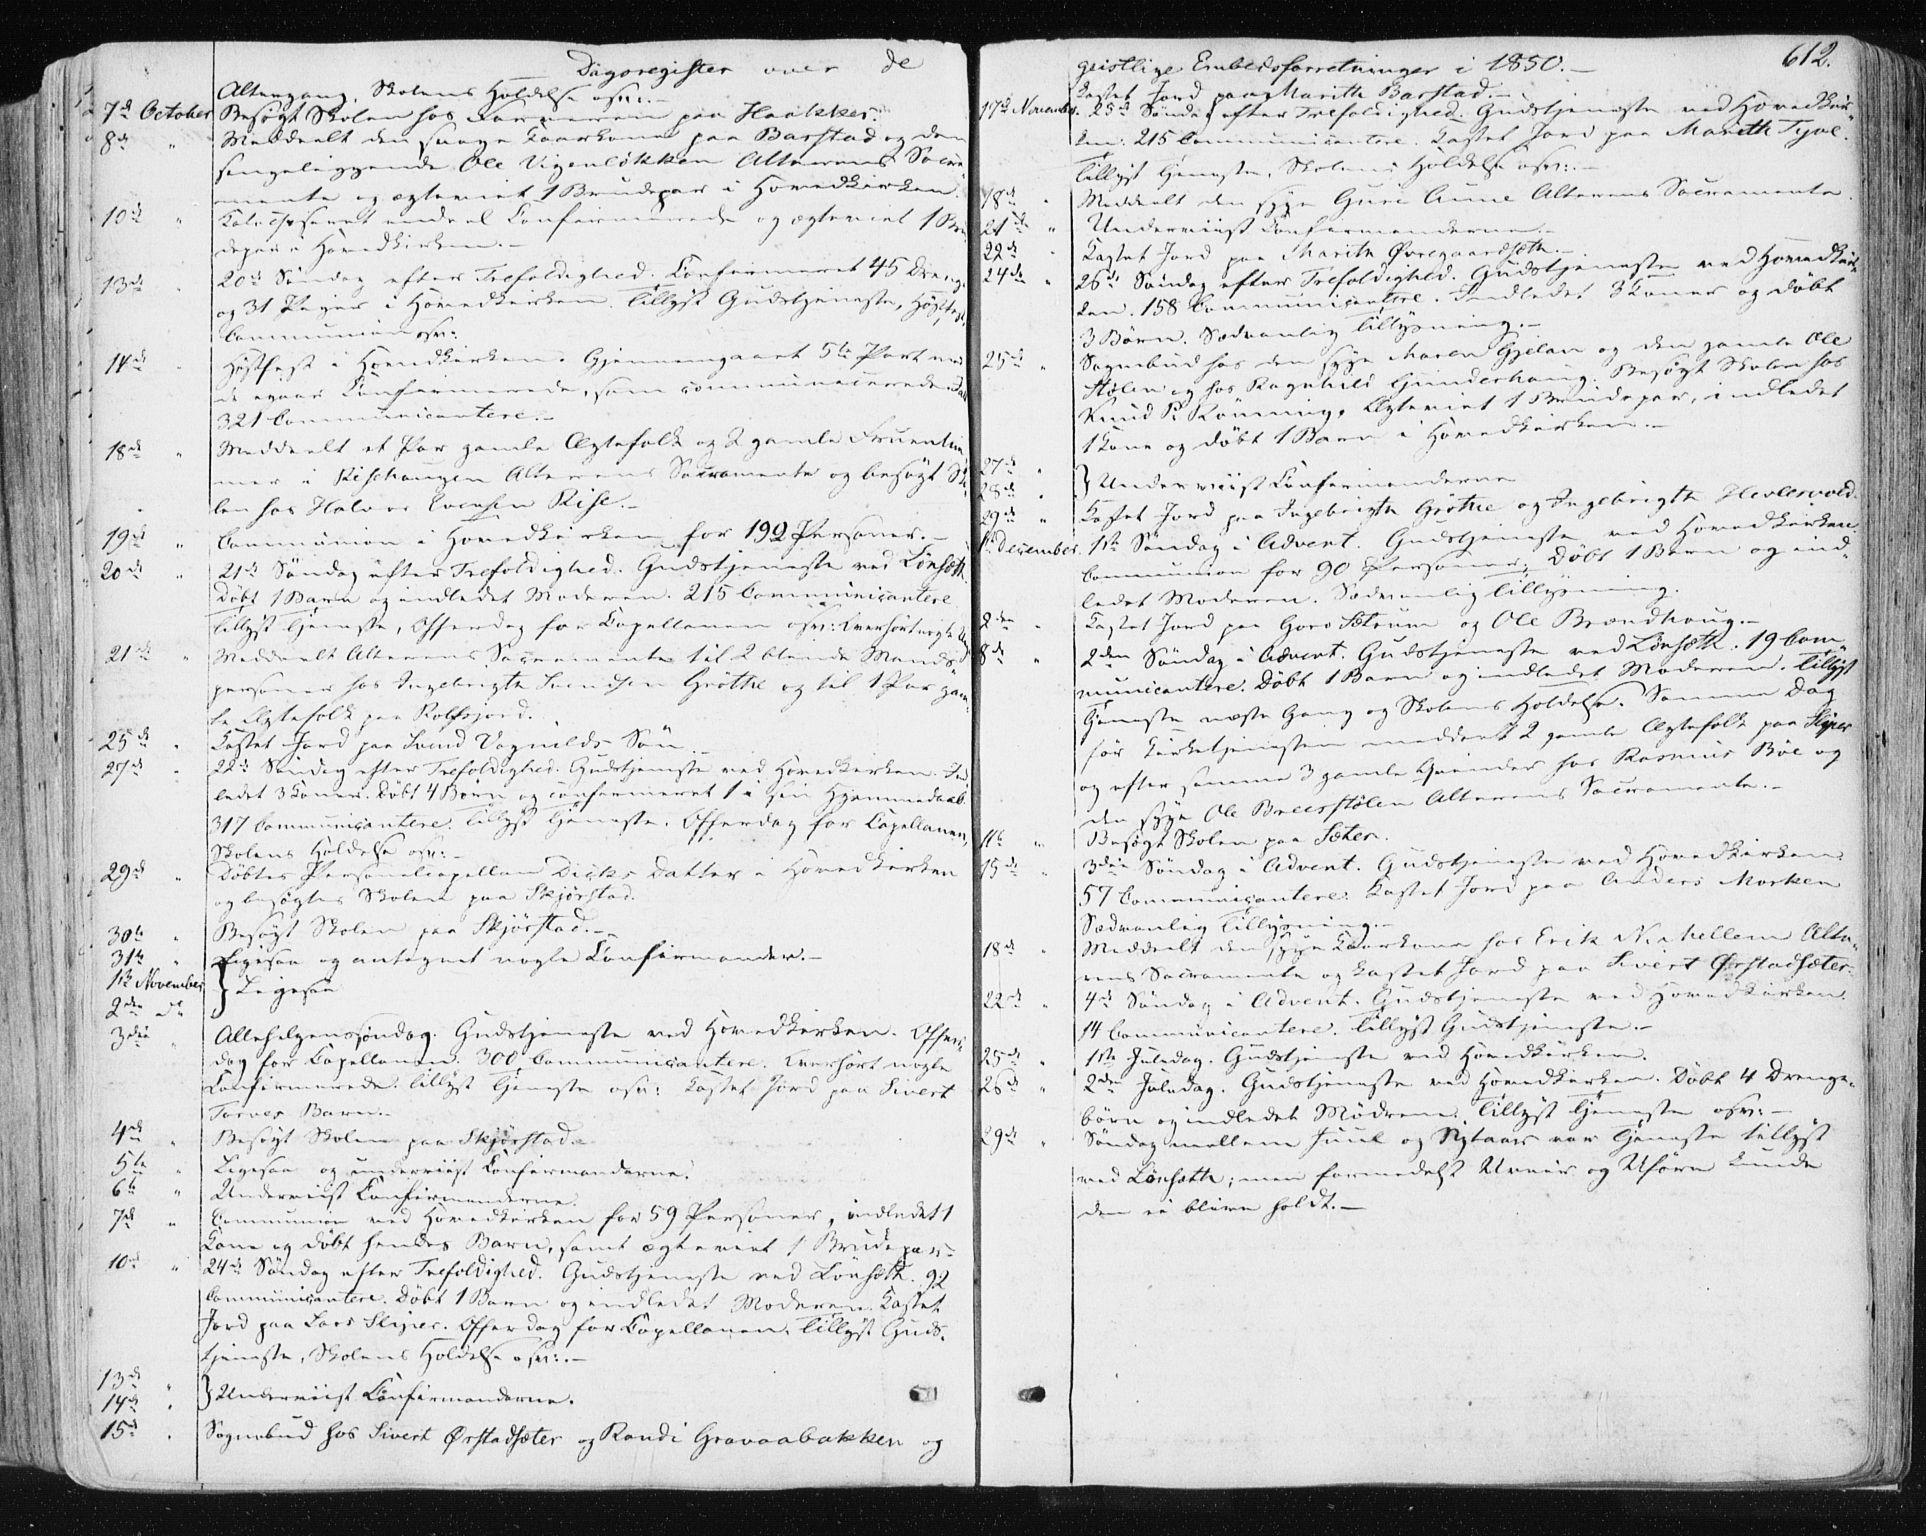 Dagsregister over de
Altergang, Skolens Holdelse osv:.-
7de October Besøgt Skolen hos paa Haakker.
8de " Meddeelt den svage Kaarkone paa Barstad og den
sengeliggende Ole Vigenløkken Alterens Sacra-
mente og ægteviet 1 Brudepar i Hovedkirken.
10de " Catechiseret endeel Confirmerede og ægteviet 1 Bru-
depar i Hovedkirken.-
13de " 20de Søndag efter Trefoldighed. Confirmeret 45 Drenge
og 31 Piger i Hovedkirken. Tillyst Gudstjeneste, Høstfest,
Communion osv:
14de " Høstfest i Hovedkirken. Gjennemgaaet 5te Part med
de Confirmerede, som communicerede.
321 Communicantere.-
18de " Meddeelt et Par gamle Ægtefolk og 2 gamle Fruentim-
mer i Risehaugen Alterens Sacramente og besøgt Sko-
len hos Halvor Evensen Rise.-
19de " Communion i Hovedkirken for 192 Personer.-
20de " 21de Søndag efter Trefoldighed. Gudstjeneste ved Lønseth.
Døbt 1 Barn og indledet Moderen. 215 Communicantere
Tillyst Tjeneste, Offerdag for Capellanen osv:
21de " Meddeelt Alterens Sacramente til 2 blinde Mands-
personer hos Ingebrigt Svendsen Gröthe og til 1 Par gam-
le Ægtefolk paa Rolfsjord.
25de " Kastet Jord paa Svend Vognilds Søn.-
27de " 22de Søndag efter Trefoldighed. Gudstjeneste ved Hovedkirken. Ind-
ledet 3 Koner. Døbt 4 Børn og confirmeret 1 i sin Hjemmedaab.
317 Communicantere. Tillyst Tjeneste. Offerdag for Capellanen,
Skolens Holdelse osv:-
29de " Døbtes Personelcapellan Dicks Datter i Hovedkirken
og besøgtes Skolen paa Skjørstad.
30te " Besøgt Skolen paa Skjørstad.-
31te " Ligesaa og antegnet nogle Confirmander.-
1ste November
2den de } Ligesaa
3die " Allehelgenssøndag. Gudstjeneste ved Hovedkirken. Offer-
dag for Capellanen. 300 Communicantere. Overhørt nogle
Confirmerede. Tillyst Tjeneste osv: Kastet Jord paa Sivert
Torves Barn.-
4de " Besøgt Skolen paa Skjørstad.
5te " Ligesaa og underviist Confirmanderne.
6te " Underviist Confirmanderne.
7de " Communion ved Hovedkirken for 59 Personer, indledet 1
Kone og døbt hendes Barn, samt ægteviet 1 Brudepar.-
10de " 24de Søndag efter Trefoldighed. Gudstjeneste ved Lønseth. 92
Communicantere. Døbt 1 Barn og indledet Moderen. Kastet
Jord paa Lars Stuper. Offerdag for Capellanen. Tillyst Guds-
tjeneste, Skolens Holdelse osv:.-
13de "
14de " } Underviist Confirmanderne.
15de " Sognebud hos Sivert Ørstadsæter og Randi Gravaabakken og
geistlige Embedsforretninger i 1850.- 612.
Kastet Jord paa Marith Barstad.-
17de November. 25de Søndag efter Trefoldighed. Gudstjeneste ved Hovedkir-
ken. 215 Communicantere. Kastet Jord paa Marith Tyve.
Tillyst Tjeneste, Skolens Holdelse osv:.-
18de " Meddeelt den syge Guri Aune Alterens Sacramente.
21de " Underviist Confirmanderne.-
22de " Kastet Jord paa Marith Øvregaardseth.-
24de " 26de Søndag efter Trefoldighed. Gudstjeneste ved Hovedkir-
ken. 158 Communicantere. Indledet 3 Koner og døbt
3 Børn. Sædvanlig Tillysning.-
25de " Sognebud hos den syge Maren Gjelan og den gamle Ole
Stølen og hos Ragnhild Gunderhaug. Besøgt Skolen hos
Knud P. Rønning. Ægteviet 1 Brudepar, indledet
1 Kone og døbt 1 Barn i Hovedkirken.-
27de "
28de " } Underviist Confirmanderne
29de " Kastet Jord paa Ingebrigt Gröthe og Ingebrigt Hevlesvold.
1ste December. 1ste Søndag i Advent. Gudstjeneste ved Hovedkirken
Communion for 90 Personer, Døbt 1 Barn og ind-
ledet Moderen. Sædvanlig Tillysning.
2den " Kastet Jord paa Goro Sætrum og Ole Brændhaug.-
8de " 2den Søndag i Advent. Gudstjeneste ved Lønseth. 19 Com-
municantere. Døbt 1 Barn og indledet Moderen. Tillyst
Tjeneste næste Gang og Skolens Holdelse. Samme Dag
før Kirketjenesten meddeelt 2 gamle Ægtefolk paa Stuper
og efter samme 3 gamle Qvinder hos Rasmus Böe og
den syge Ole Breesstølen Alterens Sacramente.-
11te " Besøgt Skolen paa Sæter.
15de " 3die Søndag i Advent. Gudstjeneste ved Hovedkirken.
57 Communicantere. Kastet Jord paa Anders Morken
Sædvanlig Tillysning.-
18de " Meddeelt den syge Kaarkone hos Erik Niehellem Alte-
rens Sacramente og kastet Jord paa Sivert Ørstadsæter.-
22de " 4de Søndag i Advent. Gudstjeneste ved Hovedkirken.
14 Communicantere. Tillyst Gudstjeneste.-
25de " 1ste Juledag. Gudstjeneste ved Hovedkirken.
26de " 2den Juledag. Gudstjeneste ved Hovedkirken. Døbt 4 Drenge-
børn og indledet Mødrene. Tillyst Tjeneste osv:-
29de " Søndag mellem Juul og Nytaar var Tjeneste tillyst
ved Lønseth; men formedelst Uveir og Uføre kunde
den ei blive holdt.-